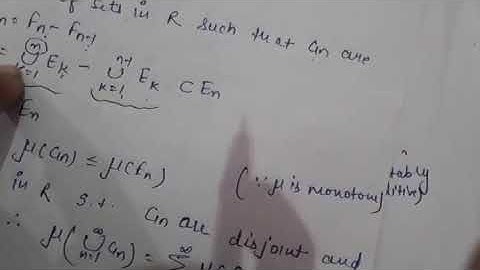 of sets in R such that Gn are
n = Fn - Fn-1
= ∪ⁿₖ₌₁ Ek - ∪ⁿ⁻¹ₖ₌₁ Ek ⊂ En
En
μ(Gn) ≤ μ(En) (∵ μ is monotone)
tably
ditive)
in R s.t. Gn are disjoint and
∴ μ(∪^∞ₙ₌₁ Gn) = Σ^∞